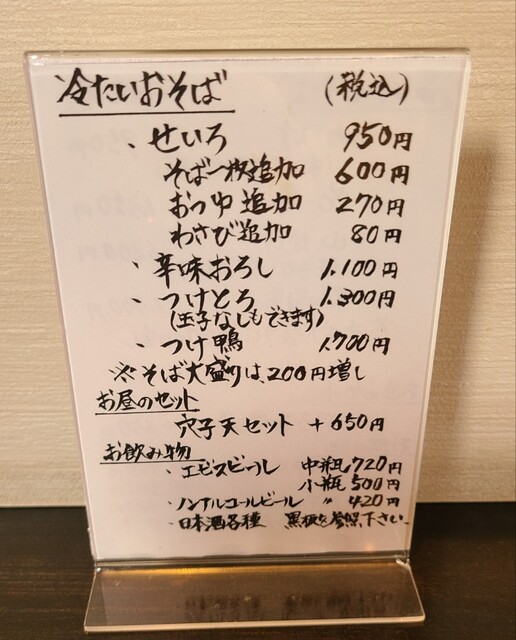 冷たいおそば (税込)
・せいろ 950円
そば一枚追加 600円
おつゆ追加 270円
わさび追加 80円
・辛味おろし 1,100円
・つけとろ 1,300円
(玉子なしもできます)
・つけ鴨 1,700円
※そば大盛りは、200円増し
お昼のセット
穴子天セット +650円
お飲み物
・エビスビール 中瓶 720円
小瓶 500円
・ノンアルコールビール 〃 420円
・日本酒各種 黒板を参照下さい。